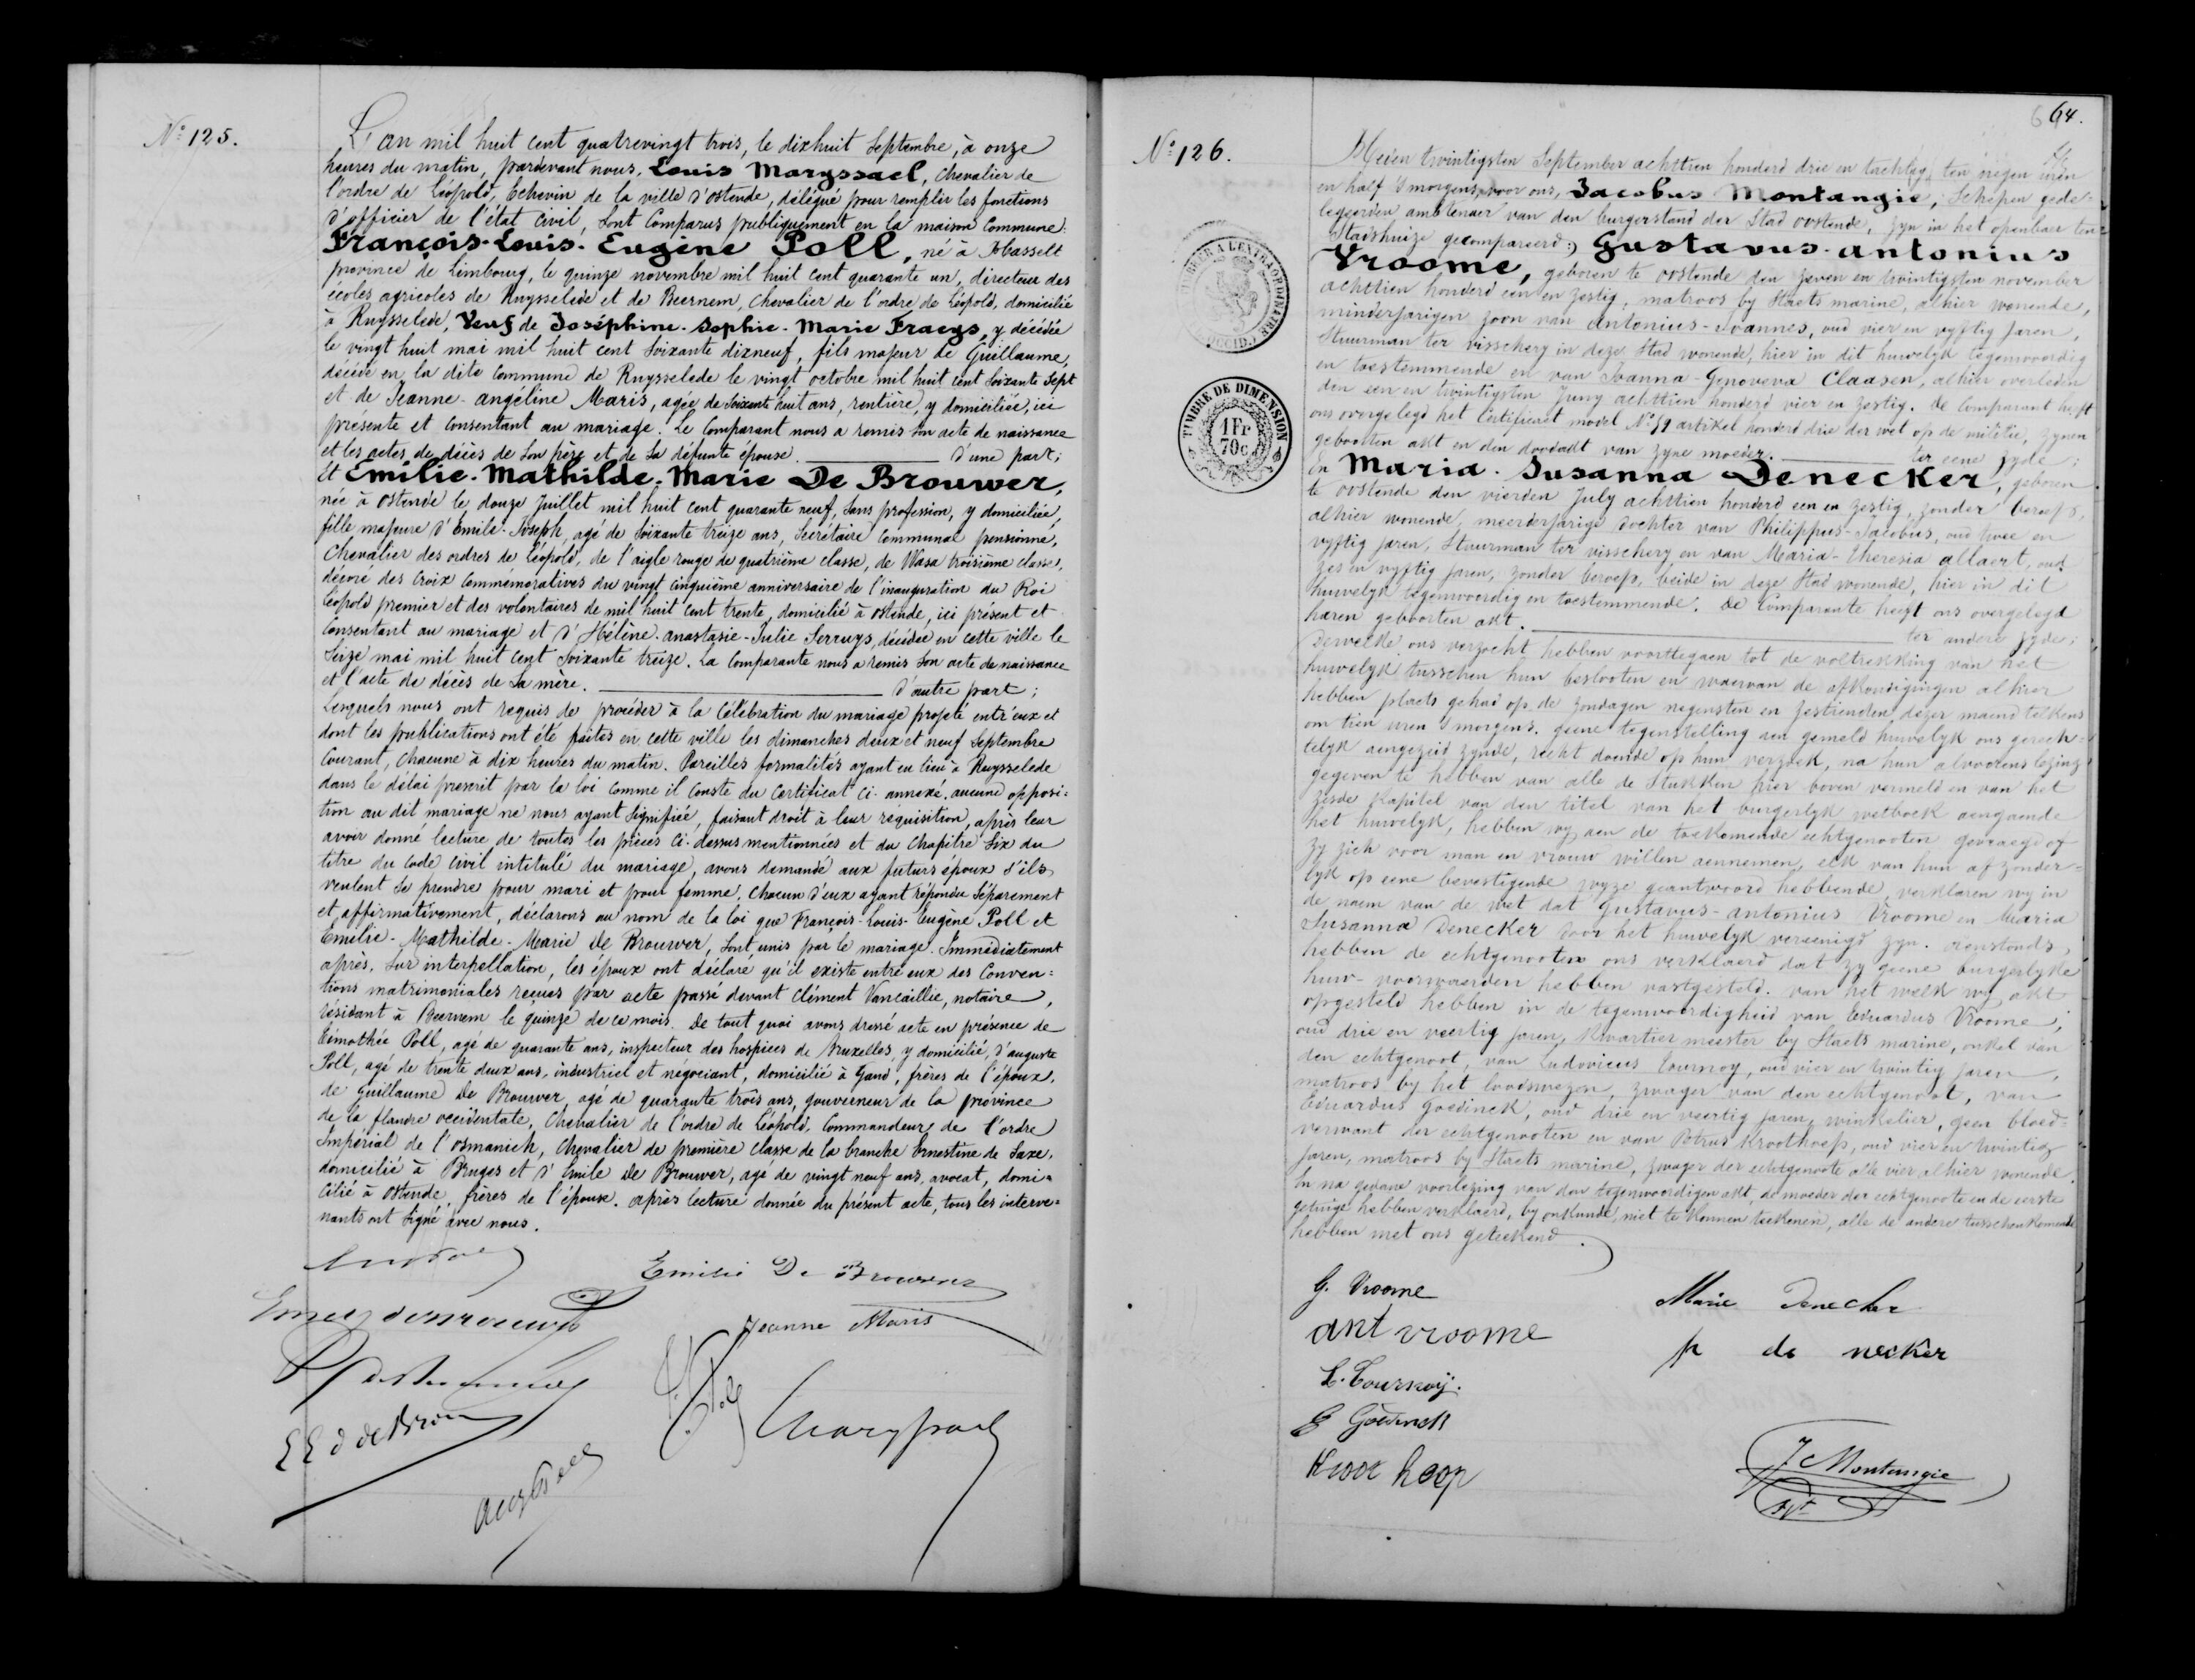 Nº 125.
L'an mil huit cent quatrevingt trois, le dixhuit Septembre, à onze
heures du matin, pardevant nous, Louis Maryssael, Chevalier de
l'ordre de Léopold, Echevin de la ville d'ostende, délégué pour remplir les fonctions
d'officier de l'état civil, sont comparus publiquement en la maison commune:
François-Louis-Eugène Poll, né à Hasselt
province de Limbourg, le quinze novembre mil huit cent quarante un, directeur des
écoles agricoles de Ruysselede et de Beernem, chevalier de l'ordre de Léopold, domicilié
à Ruysselede, Veuf de Joséphine-Sophie-Marie Fraeys, y décédée
le vingt huit mai mil huit cent soixante dixneuf, fils majeur de Guillaume,
décédé en la dite commune de Ruysselede le vingt octobre mil huit cent soixante sept
et de Jeanne-angeline Maris, agée de soixante huit ans, rentière, y domiciliée, ici
présente et consentant au mariage. Le comparant nous a remis son acte de naissance
et les actes de décès de son père et de sa défunte épouse. d'une part;
Et Emilie-Mathilde-Marie De Brouwer,
née à ostende le douze Juillet mil huit cent quarante neuf, sans profession, y domiciliée,
fille majeure d'Emile-Joseph, agé de soixante treize ans, Secrétaire communal pensionné,
Chevalier des ordres de Léopold, de l'aigle rouge de quatrième classe, de Wasa troisième classe,
décoré des croix commémoratives du vingt cinquième anniversaire de l'inauguration du Roi
Léopold premier et des volontaires de mil huit cent trente, domicilié à ostende, ici présent et
consentant au mariage et d'Hélène-anastasie-Julie Serruys, décédée en cette ville le
seize mai mil huit cent soixante treize. La comparante nous a remis son acte de naissance
et l'acte de décès de sa mère. d'autre part;
Lesquels nous ont requis de procéder à la célébration du mariage projeté entr'eux et
dont les publications ont été faites en cette ville les dimanches deux et neuf Septembre
courant, chacune à dix heures du matin. Pareilles formalités ayant eu lieu à Ruysselede
dans le délai prescrit par la loi comme il conste du certificat ci-annexé. aucune opposi=
tion au dit mariage ne nous ayant signifiée, faisant droit à leur réquisition, après leur
avoir donné lecture de toutes les pièces ci-dessus mentionnées et du chapitre six du
titre du code civil intitulé du mariage, avons demandé aux futurs époux s'ils
veulent se prendre pour mari et pour femme. chacun d'eux ayant répondu séparement
et affirmativement, déclarons au nom de la loi que François-Louis-Eugène Poll et
Emilie-Mathilde-Marie De Brouwer, sont unis par le mariage. Immédiatement
après, sur interpellation, les époux ont déclaré qu'il existe entre eux des conven=
tions matrimoniales reçues par acte passé devant Clément Vancaillie, notaire,
résidant à Beernem le quinze de ce mois. De tout quoi avons dressé acte en présence de
Timothée Poll, agé de quarante ans, inspecteur des hospices de Bruxelles, y domicilié, d'auguste
Poll, agé de trente deux ans, industriel et négociant, domicilié à Gand, frères de l'époux,
de Guillaume De Brouwer, agé de quarante trois ans, gouverneur de la province
de la flandre occidentale, Chevalier de l'ordre de Léopold, Commandeur de l'ordre
Impérial de l'osmanieh, chevalier de première classe de la branche Ernestine de Saxe,
domicilié à Bruges et d'Emile De Brouwer, agé de vingt neuf ans, avocat, domi=
cilié à ostende, frères de l'épouse. après lecture donnée du présent acte, tous les interve=
nants ont signé avec nous.
Emilie De Brouwer
Jeanne Maris
Aug Poll
Maryssael
64.
Nº 126.
TIMBRE DE DIMENSION
1 Fr
70c
Heden twintigsten September achttien honderd drie en tachtig, ten negen uren
en half 's morgens, voor ons, Jacobus Montangie, Schepen gede=
legeerden ambtenaer van den burgerstand der Stad oostende, zyn in het openbaer ten
Stadshuize gecompareerd: Gustavus-antonius
Vroome, geboren te oostende den zeven en twintigsten november
achttien honderd een en zestig, matroos by Staets marine, alhier wonende,
minderjarigen zoon van antonius-Joannes, oud vier en vyftig jaren,
Stuurman ter visschery in deze Stad wonende, hier in dit huwelyk tegenwoordig
en toestemmende en van Joanna-Genoveva Claasen, alhier overleden
den een en twintigsten Juny achttien honderd vier en zestig. de comparant heeft
ons overgelegd het certificaat model Nº 19 artikel honderd drie der wet op de militie, zynen
geboorten akt en den doodakt van zyne moeder. ter eene zyde;
En Maria-Susanna Denecker, geboren
te oostende den vierden July achttien honderd een en zestig, zonder beroep,
alhier wonende, meerderjarige dochter van Philippus-Jacobus, oud twee en
vyftig jaren, Stuurman ter visschery en van Maria-Theresia allaert, oud
zes en vyftig jaren, zonder beroep, beide in deze Stad wonende, hier in dit
huwelyk tegenwoordig en toestemmende. de comparante heeft ons overgelegd
haren geboorten akt. ter andere zyde;
Dewelke ons verzocht hebben voorttegaen tot de voltrekking van het
huwelyk tusschen hun besloten en waervan de afkondigingen alhier
hebben plaets gehad op de zondagen negensten en zestienden dezer maend telkens
om tien uren 's morgens. geene tegenstelling aen gemeld huwelyk ons gerech=
telyk aengezeid zynde, recht doende op hun verzoek, na hun alvoorens lezing
gegeven te hebben van alle de Stukken hier boven vermeld en van het
zesde kapitel van den titel van het burgerlyk wetboek aengaende
het huwelyk, hebben wy aen de toekomende echtgenooten gevraegd of
zy zich voor man en vrouw willen aennemen, elk van hun afzonder=
lyk op eene bevestigende wyze geantwoord hebbende, verklaren wy in
de naem van de wet dat Gustavus-antonius Vroome en Maria
Susanna Denecker door het huwelyk vereenigd zyn. aenstonds
hebben de echtgenooten ons verklaerd dat zy geene burgerlyke
huw-voorwaerden hebben vastgesteld. van het welk wy akt
opgesteld hebben in de tegenwoordigheid van Eduardus Vroome,
oud drie en veertig jaren, kwartier meester by Staets marine, onkel van
den echtgenoot, van Ludovicus Tournoy, oud vier en twintig jaren,
matroos by het loodswezen, zwager van den echtgenoot, van
Eduardus Goedinck, oud drie en veertig jaren, winkelier, geen bloed=
verwant der echtgenooten en van Petrus Kroothoep, oud vier en twintig
jaren, matroos by Staets marine, zwager der echtgenoote alle vier alhier wonende.
En na gedane voorlezing van den tegenwoordigen akt, de moeder der echtgenoote en de eerste
getuige hebben verklaerd, by onkunde, niet te konnen teekenen, alle de andere tusschenkomende
hebben met ons geteekend.
G. Vroome
Marie Denecker
ant vroome
p de necker
L. Tournoÿ.
E Goedinck
Kroot hoep
J Montangie